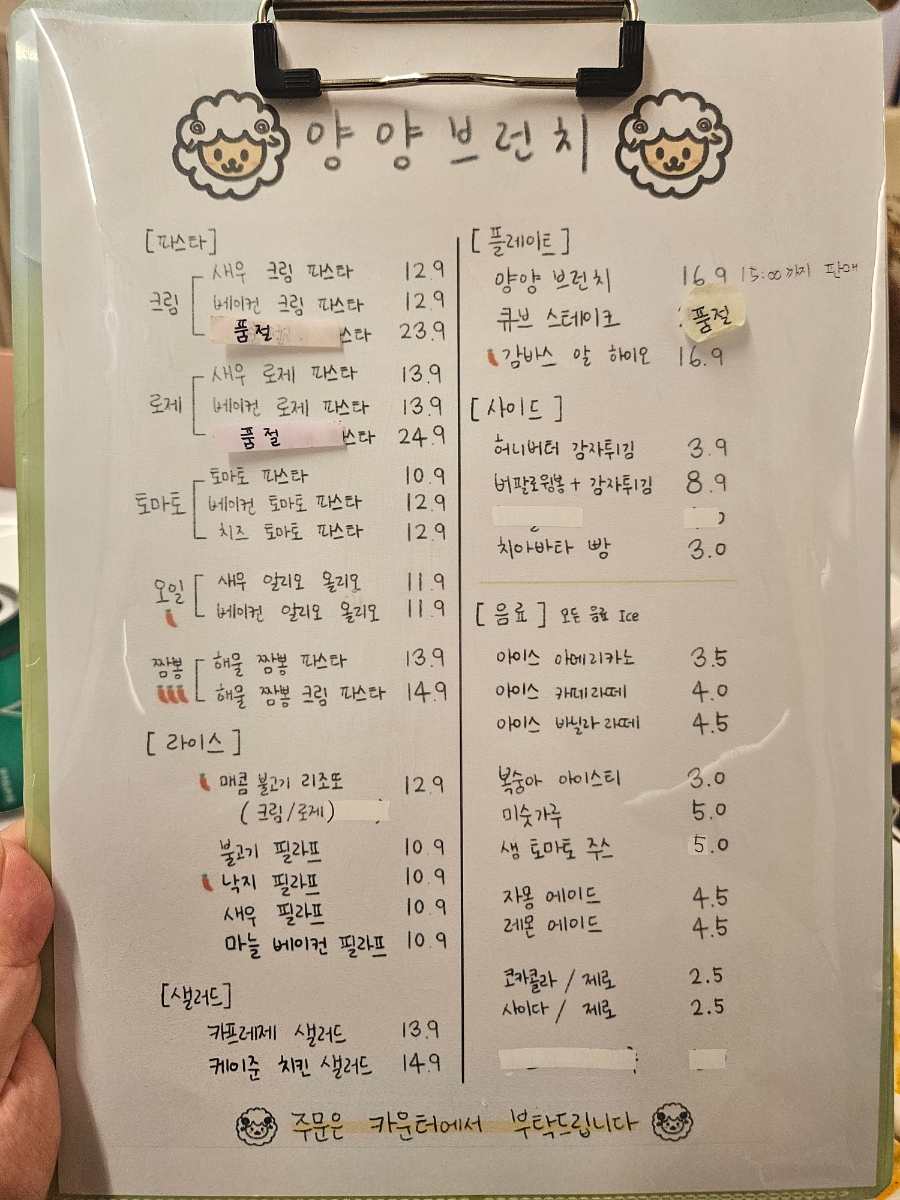 양양브런치
[파스타]
크림
새우 크림 파스타 12.9
베이컨 크림 파스타 12.9
품절 스타 23.9
로제
새우 로제 파스타 13.9
베이컨 로제 파스타 13.9
품절 스타 24.9
토마토
토마토 파스타 10.9
베이컨 토마토 파스타 12.9
치즈 토마토 파스타 12.9
오일
새우 알리오 올리오 11.9
베이컨 알리오 올리오 11.9
짬뽕
해물 짬뽕 파스타 13.9
해물 짬뽕 크림 파스타 14.9
[라이스]
매콤 불고기 리조또 12.9
(크림/로제)
불고기 필라프 10.9
낙지 필라프 10.9
새우 필라프 10.9
마늘 베이컨 필라프 10.9
[샐러드]
카프레제 샐러드 13.9
케이준 치킨 샐러드 14.9
[플레이트]
양양 브런치 16.9 15:00까지 판매
큐브 스테이크 품절
감바스 알 하이오 16.9
[사이드]
허니버터 감자튀김 3.9
버팔로윙봉+감자튀김 8.9
치아바타 빵 3.0
[음료] 모든 음료 Ice
아이스 아메리카노 3.5
아이스 카페라떼 4.0
아이스 바닐라라떼 4.5
복숭아 아이스티 3.0
미숫가루 5.0
생 토마토 주스 5.0
자몽 에이드 4.5
레몬 에이드 4.5
코카콜라 / 제로 2.5
사이다 / 제로 2.5
주문은 카운터에서 부탁드립니다